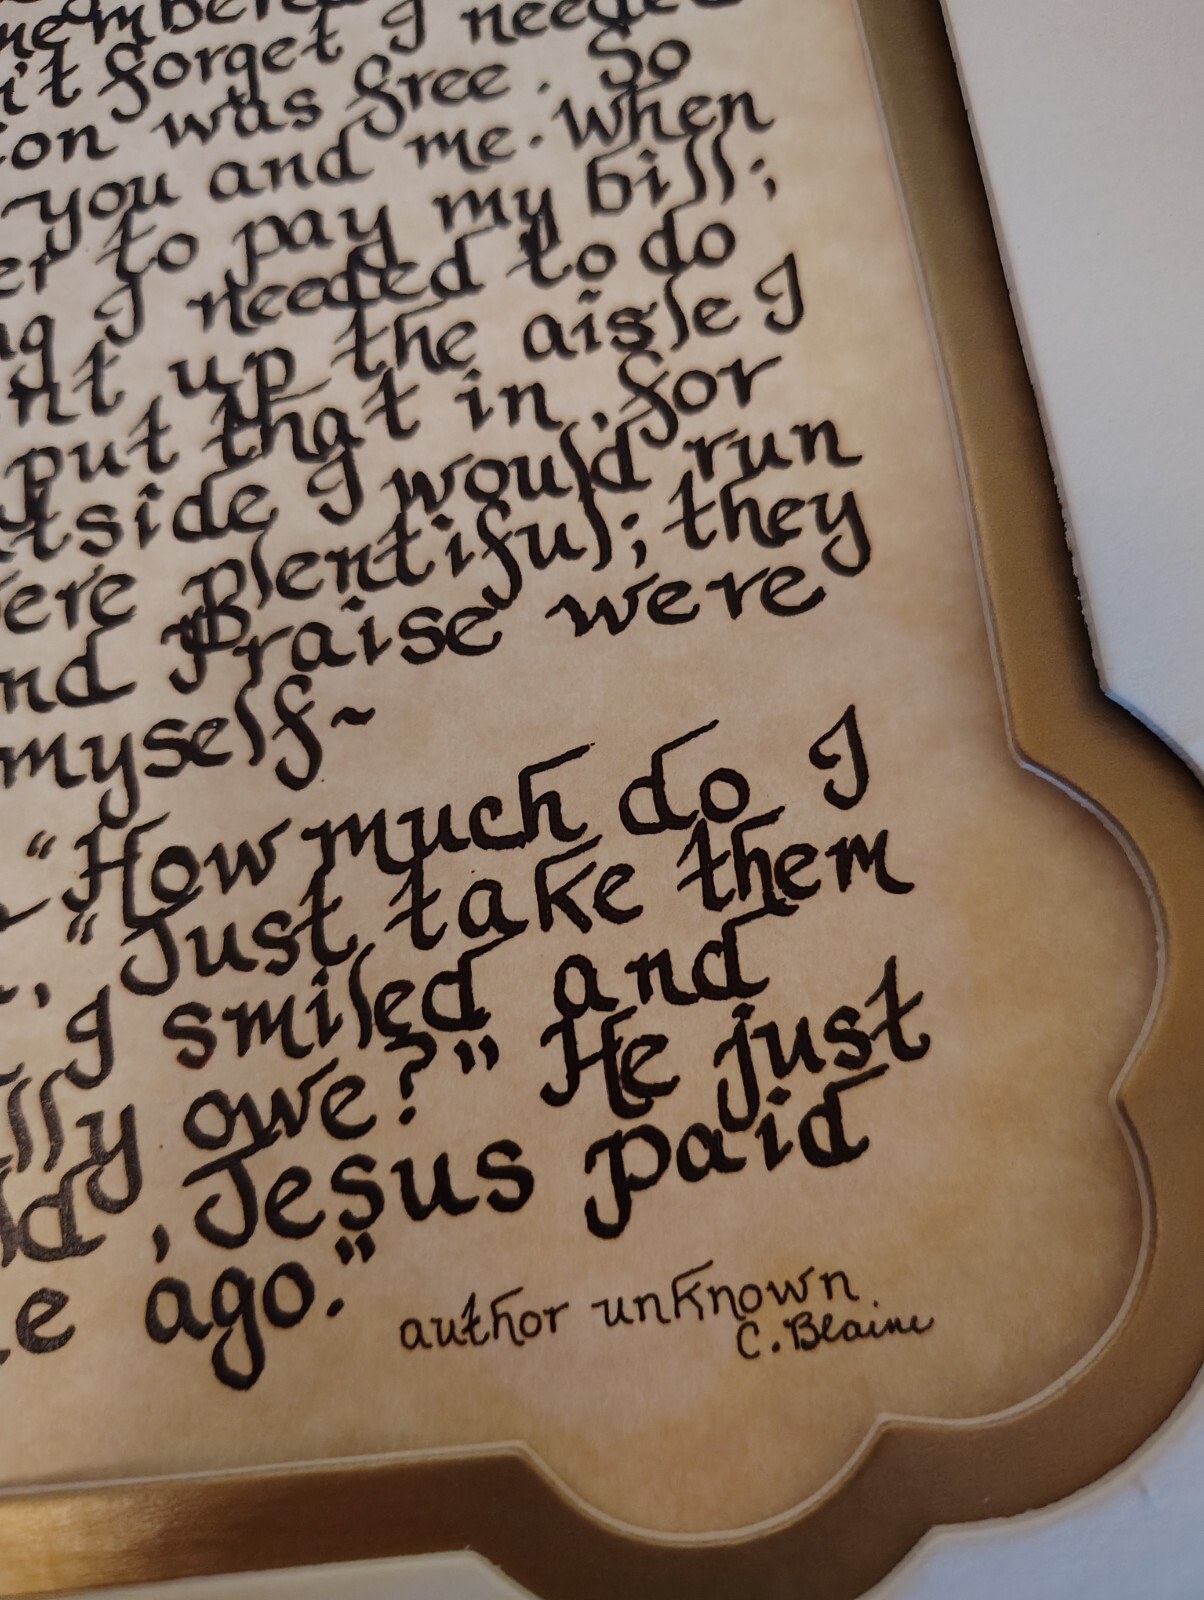 't forget I needed
was free. So
you and me. When
to pay my bill;
I needed to do
up the aisle I
put that in, for
I would run
plentiful; they
Praise were
myself~
"How much do I
"Just take them
I smiled and
owe?" He just
, Jesus paid
ago."
author unknown
C. Blaine